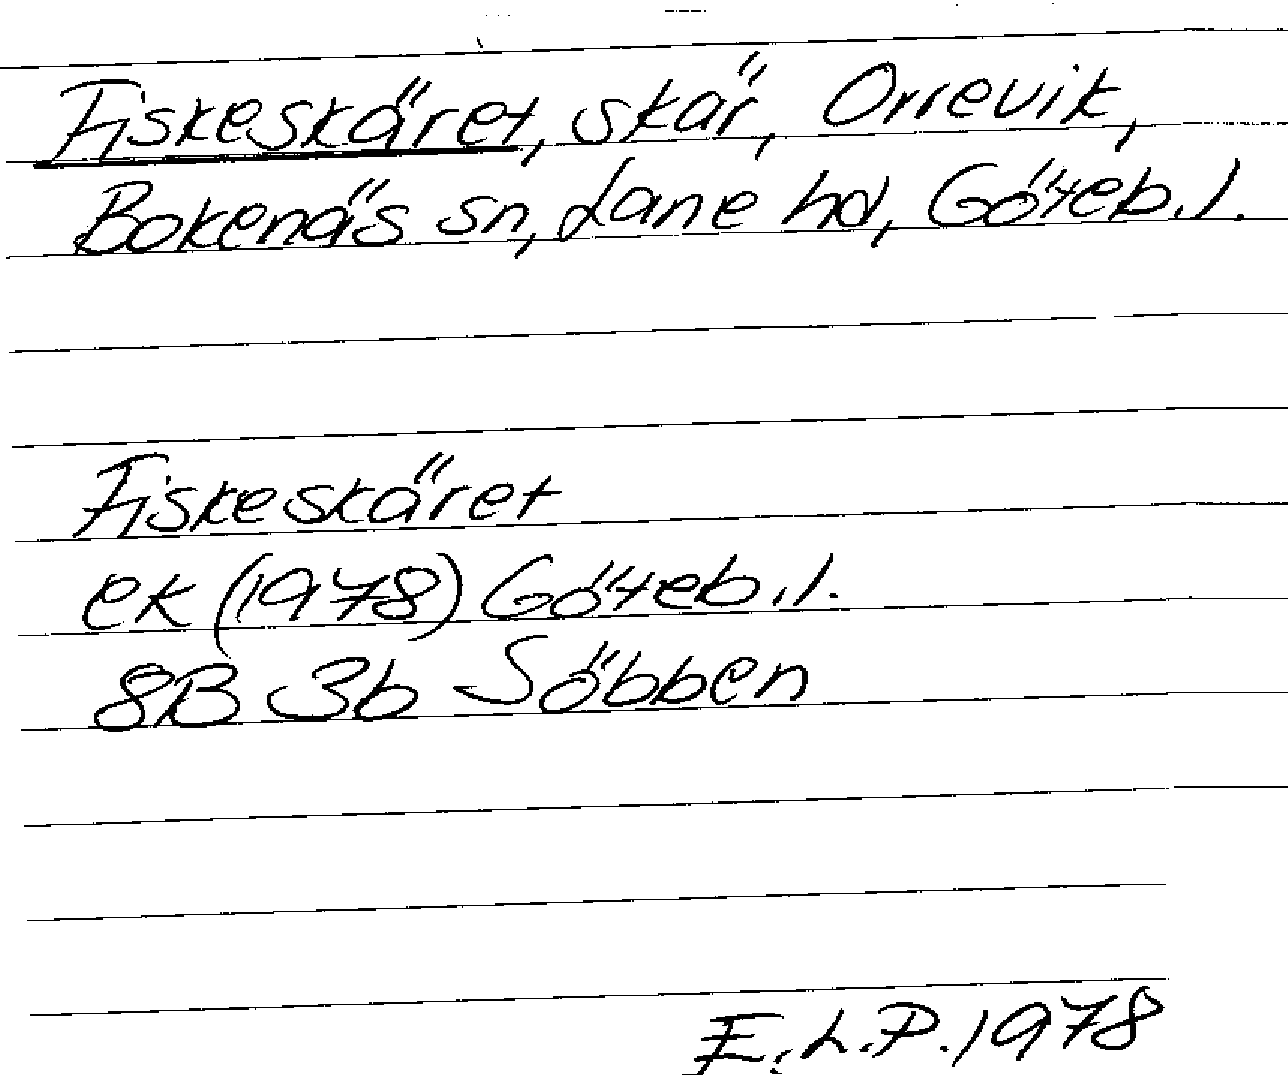 Fiskeskäret, skär, Orrevik,
Bokenäs sn, Lane hd, Göteb. l.
Fiskeskäret
ek (1978) Göteb. l.
8B 3b Söbben
E.L.P. 1978